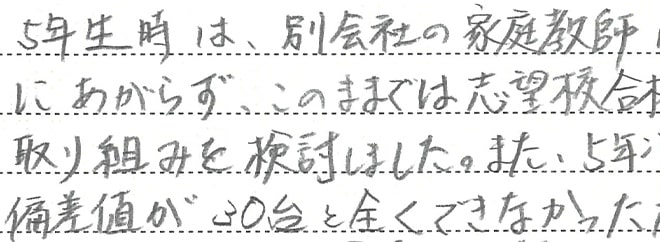 5年生時は、別会社の家庭教師
にあがらず、このままでは志望校合格
取り組みを検討しました。また、5年
偏差値が30台と全くできなかった